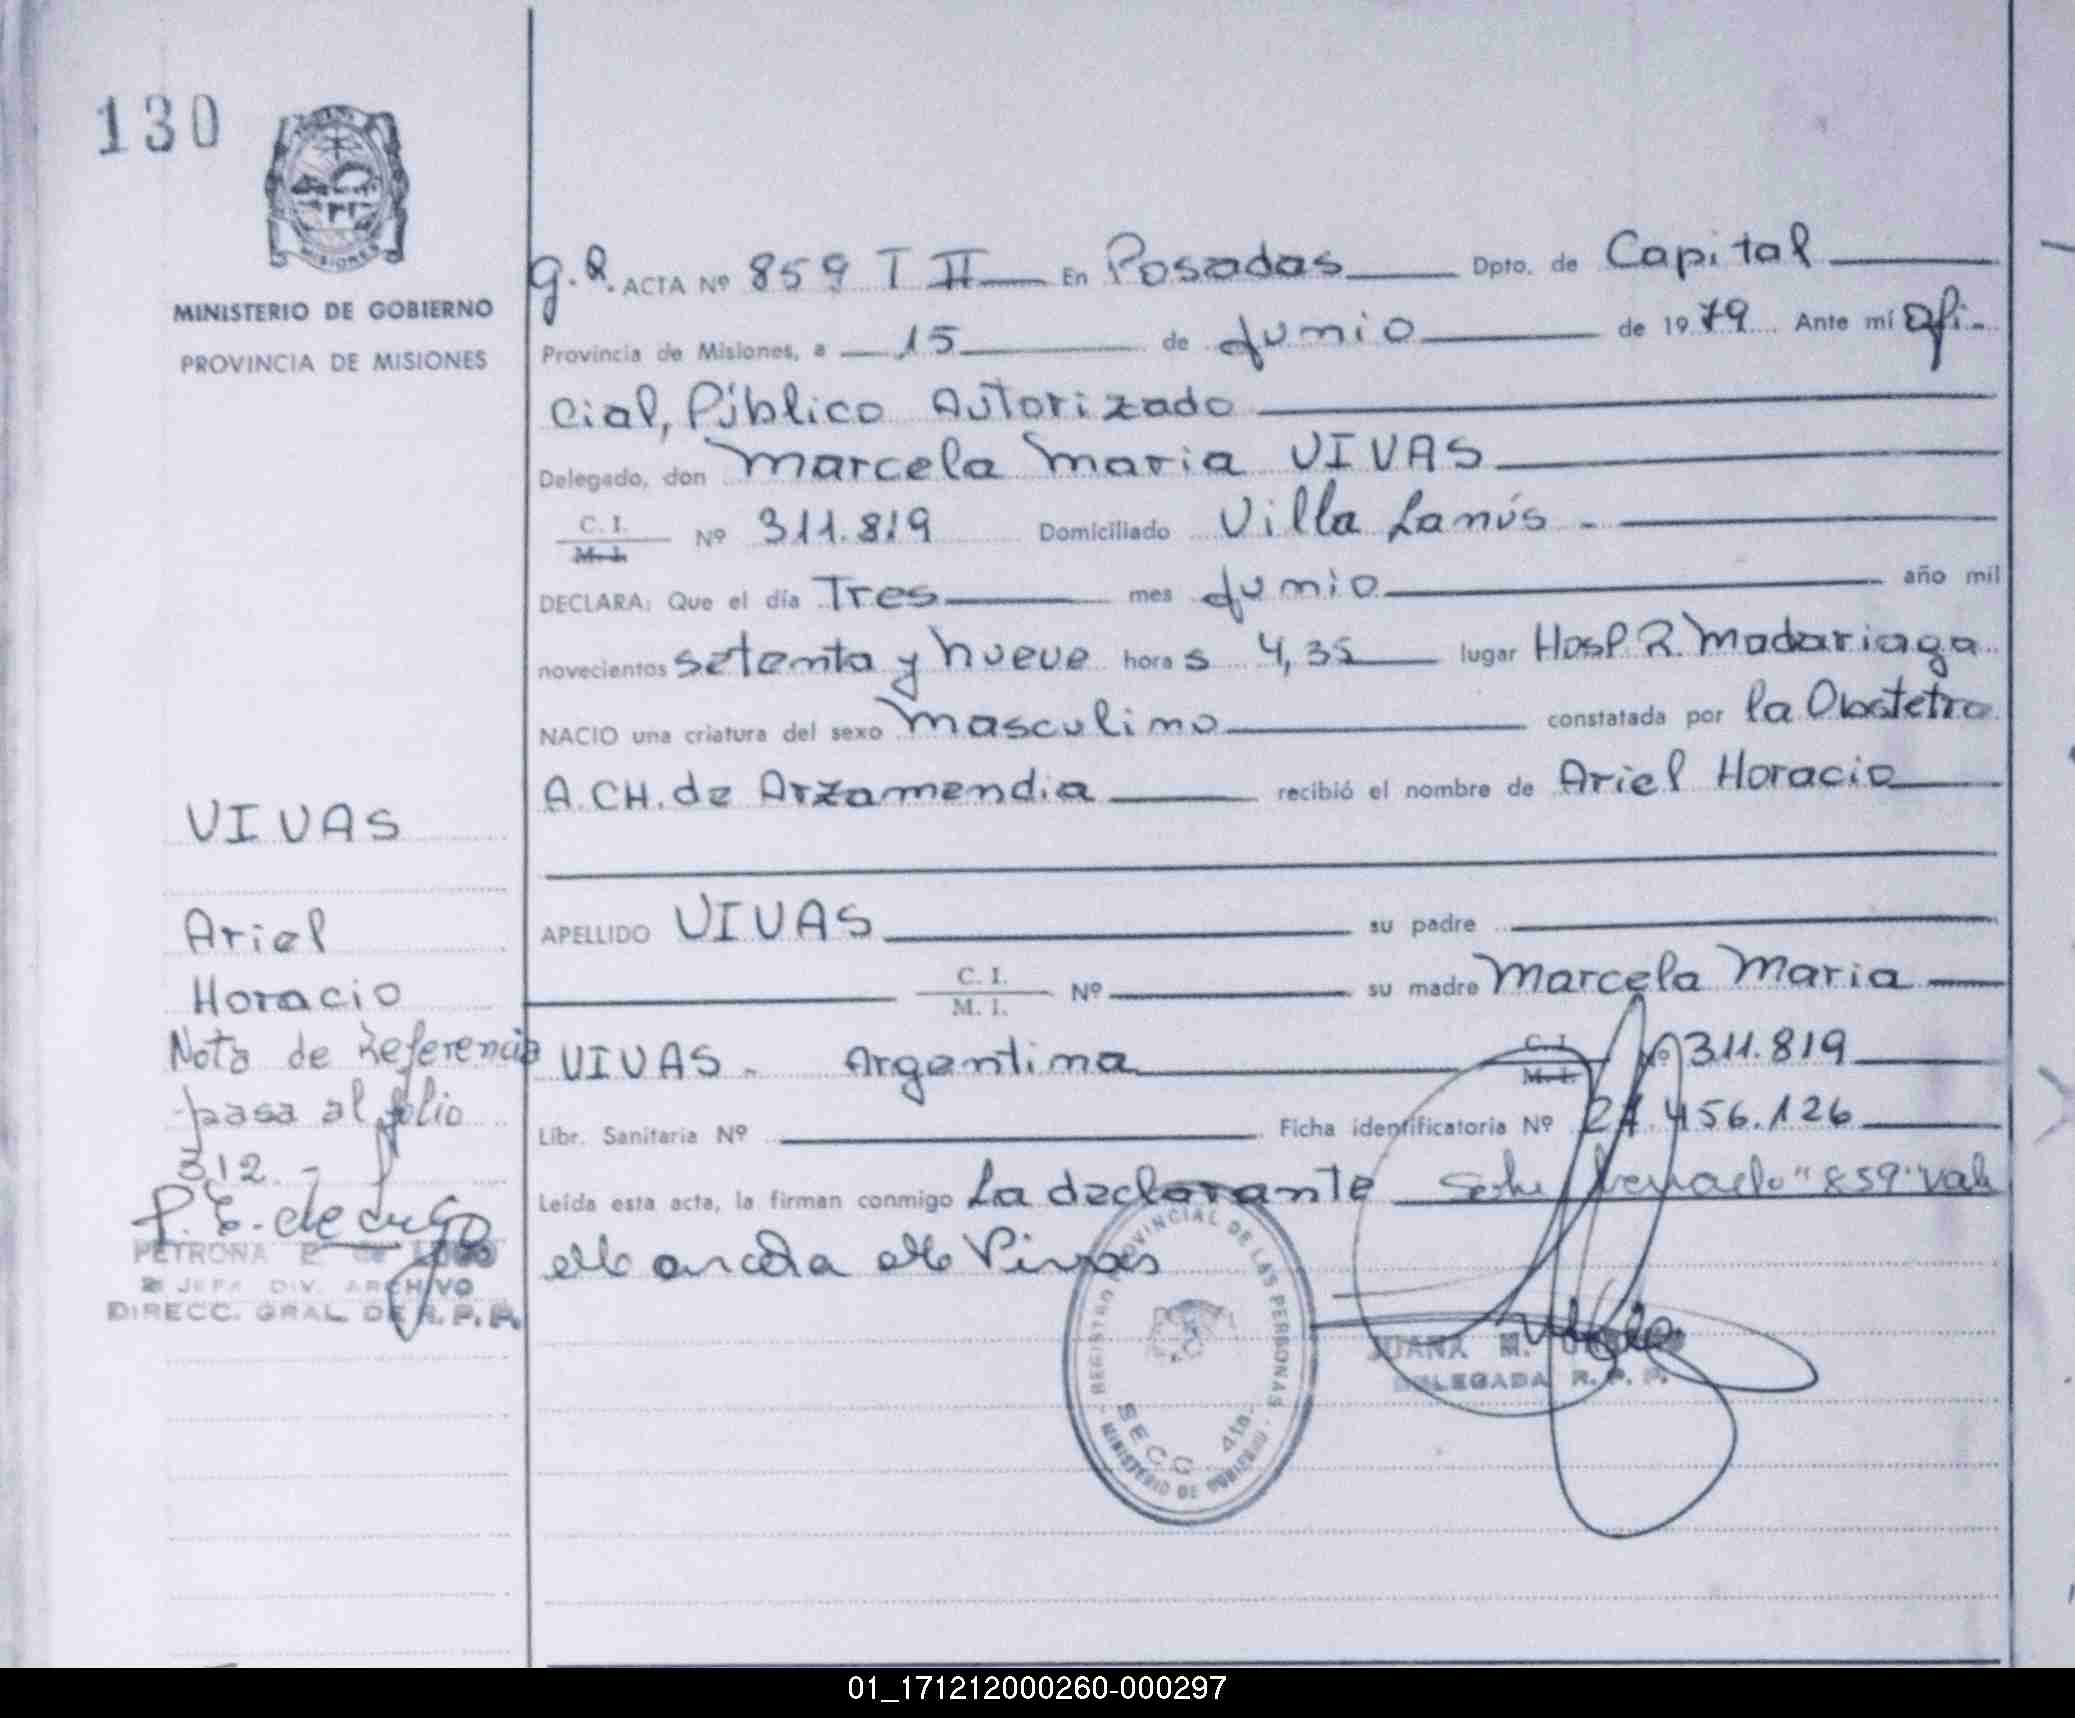 130
MISIONES
MINISTERIO DE GOBIERNO
PROVINCIA DE MISIONES
ACTA Nº 859 T II En Posadas Dpto. de Capital
Provincia de Misiones, a 15 de Junio de 1979 Ante mí Ofi-
cial, Público Autorizado
Delegado, don Marcela Maria VIVAS
C. I.
M. I.
Nº 311.819 Domiciliado Villa Lanús -
DECLARA: Que el día Tres mes Junio año mil
novecientos setenta y nueve horas 4,35 lugar Hosp R. Madariaga
NACIO una criatura del sexo Masculino constatada por la Obstetra
A. CH. de Arzamendia recibió el nombre de Ariel Horacio
APELLIDO VIVAS su padre
C. I.
M. I.
Nº su madre Marcela Maria
VIVAS - Argentina C. I.
M. I.
Nº 311.819
Libr. Sanitaria Nº Ficha identificatoria Nº 27.456.126
Leída esta acta, la firman conmigo La declarante "859" vale
Marcela M Vivas
VIVAS
Ariel
Horacio
Nota de Referencia
pasa al folio
312. -
P. E. de Lugo
PETRONA E de LUGO
JEFA DIV. ARCHIVO
DIRECC. GRAL DE R. P. P.
REGISTRO PROVINCIAL DE LAS PERSONAS
SECC. 4ta.
MINISTERIO DE GOBIERNO
JUANA M.
DELEGADA R. P. P.
01_171212000260-000297